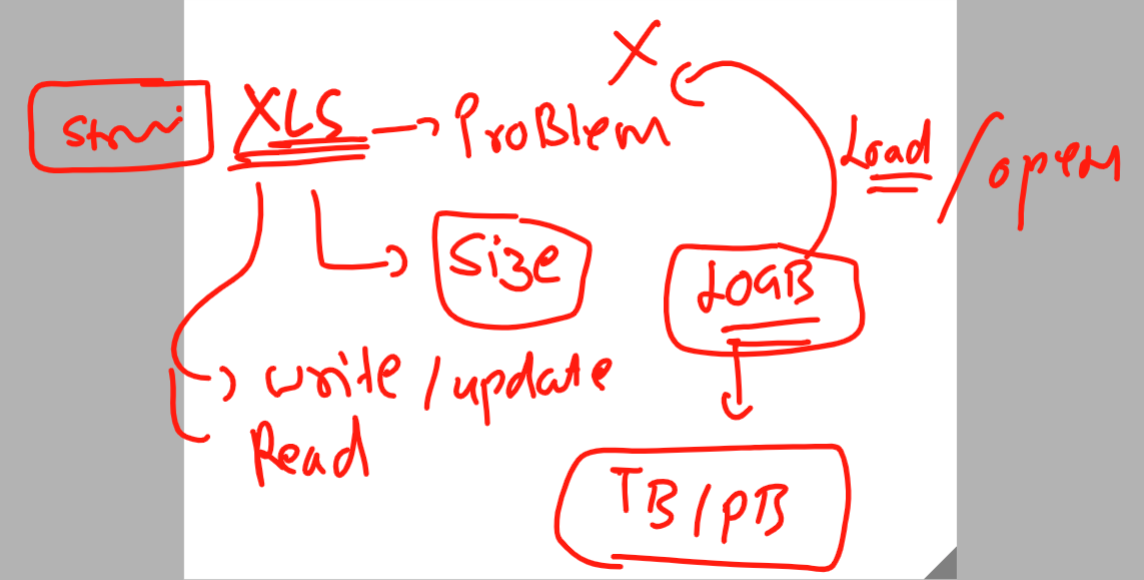 XLS → Problem X
Load / open
Size
10GB
write / update
Read
TB / PB